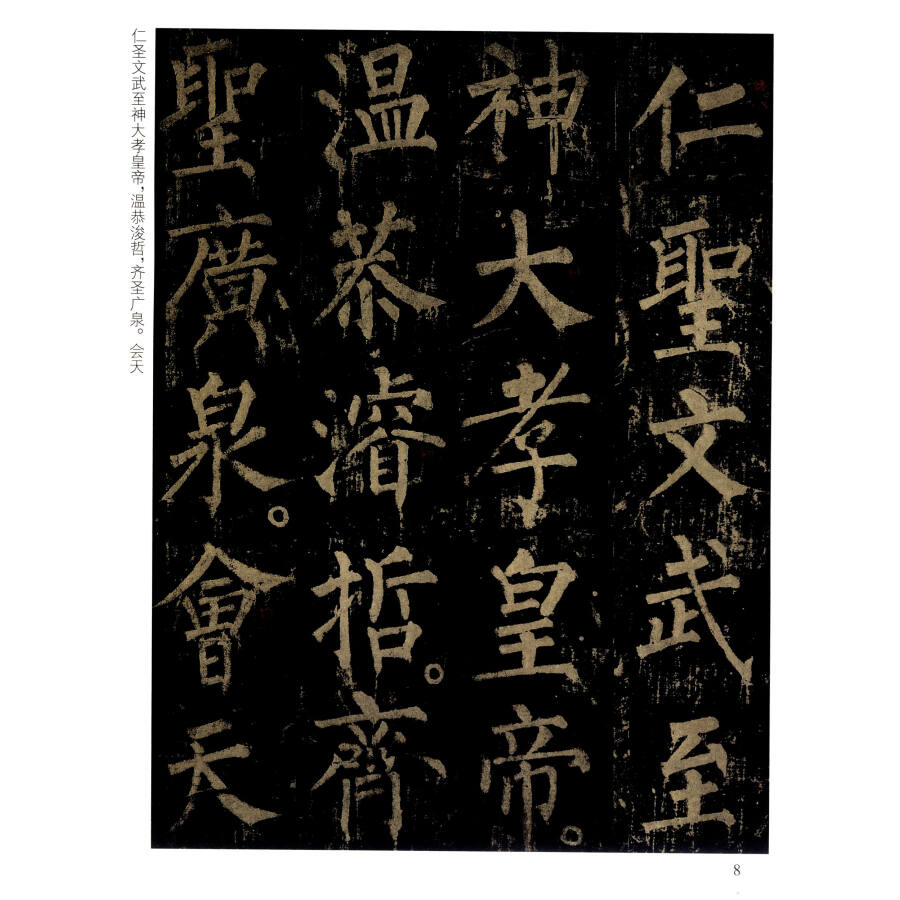 仁聖文武至
神大孝皇帝。
温恭濬哲。齊
聖廣泉。會天
仁圣文武至神大孝皇帝，温恭浚哲，齐圣广泉。会天
8